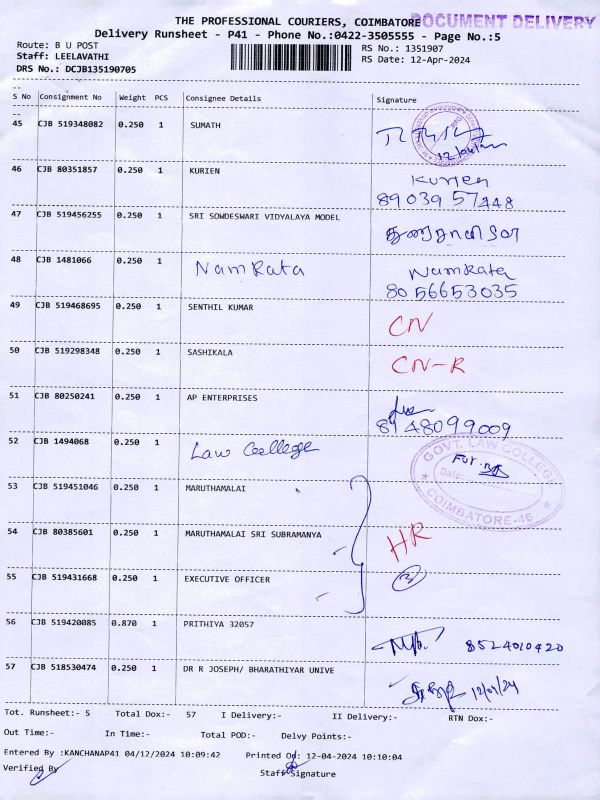 THE PROFESSIONAL COURIERS, COIMBATORE DOCUMENT DELIVERY
Delivery Runsheet - P41 - Phone No.:0422-3505555 - Page No.:5
Route: B U POST RS No.: 1351907
Staff: LEELAVATHI RS Date: 12-Apr-2024
DRS No.: DCJB135190705
S No Consignment No Weight PCS Consignee Details Signature
45 CJB 519348082 0.250 1 SUMATH
46 CJB 80351857 0.250 1 KURIEN Kurien
89039 57448
47 CJB 519456255 0.250 1 SRI SOWDESWARI VIDYALAYA MODEL
48 CJB 1481066 0.250 1 NamRata NamRata
80 56653035
49 CJB 519468695 0.250 1 SENTHIL KUMAR CN
50 CJB 519298348 0.250 1 SASHIKALA CN-R
51 CJB 80250241 0.250 1 AP ENTERPRISES
8948099009
52 CJB 1494068 0.250 1 Law College GOVT. LAW COLLEGE
For.
COIMBATORE-46
53 CJB 519451046 0.250 1 MARUTHAMALAI
54 CJB 80385601 0.250 1 MARUTHAMALAI SRI SUBRAMANYA HR
55 CJB 519431668 0.250 1 EXECUTIVE OFFICER 3
56 CJB 519420085 0.870 1 PRITHIYA 32057 8524010420
57 CJB 518530474 0.250 1 DR R JOSEPH/ BHARATHIYAR UNIVE 12/04/24
Tot. Runsheet:- 5 Total Dox:- 57 I Delivery:- II Delivery:- RTN Dox:-
Out Time:- In Time:- Total POD:- Delvy Points:-
Entered By :KANCHANAP41 04/12/2024 10:09:42 Printed On: 12-04-2024 10:10:04
Verified By Staff Signature